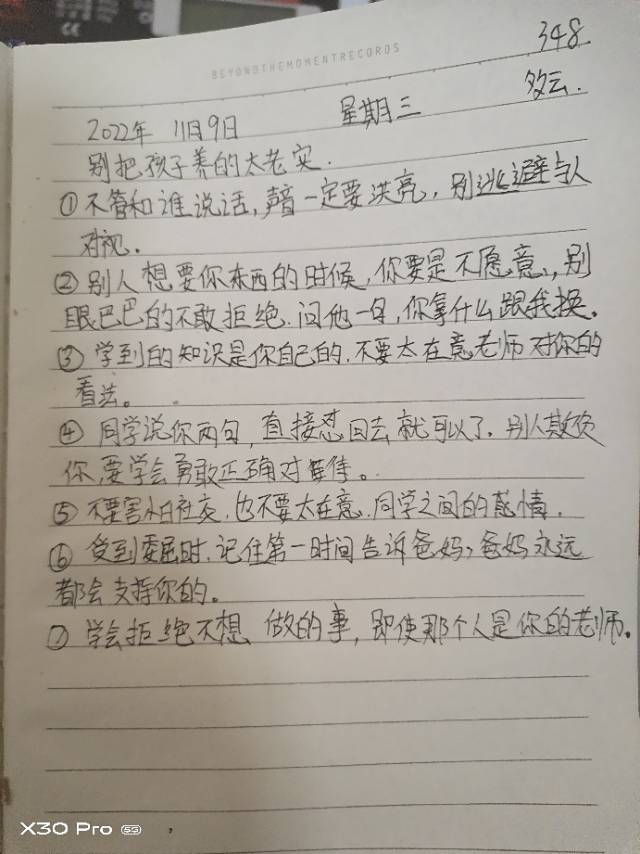 BEYONDTHEMOMENTRECORDS
348
2022年 11日9日 星期三 多云.
别把孩子养的太老实.
①不管和谁说话,声音一定要洪亮,别逃避与人
对视.
②别人想要你东西的时候,你要是不愿意,别
眼巴巴的不敢拒绝.问他一句,你拿什么跟我换。
③学到的知识是你自己的.不要太在意老师对你的
看法。
④同学说你两句,直接怼回去就可以了.别人欺负
你,要学会勇敢正确对待。
⑤不要害怕社交,也不要太在意.同学之间的感情.
⑥受到委屈时.记住第一时间告诉爸妈,爸妈永远
都会支持你的。
⑦学会拒绝不想做的事,即使那个人是你的老师。
X30 Pro 5G